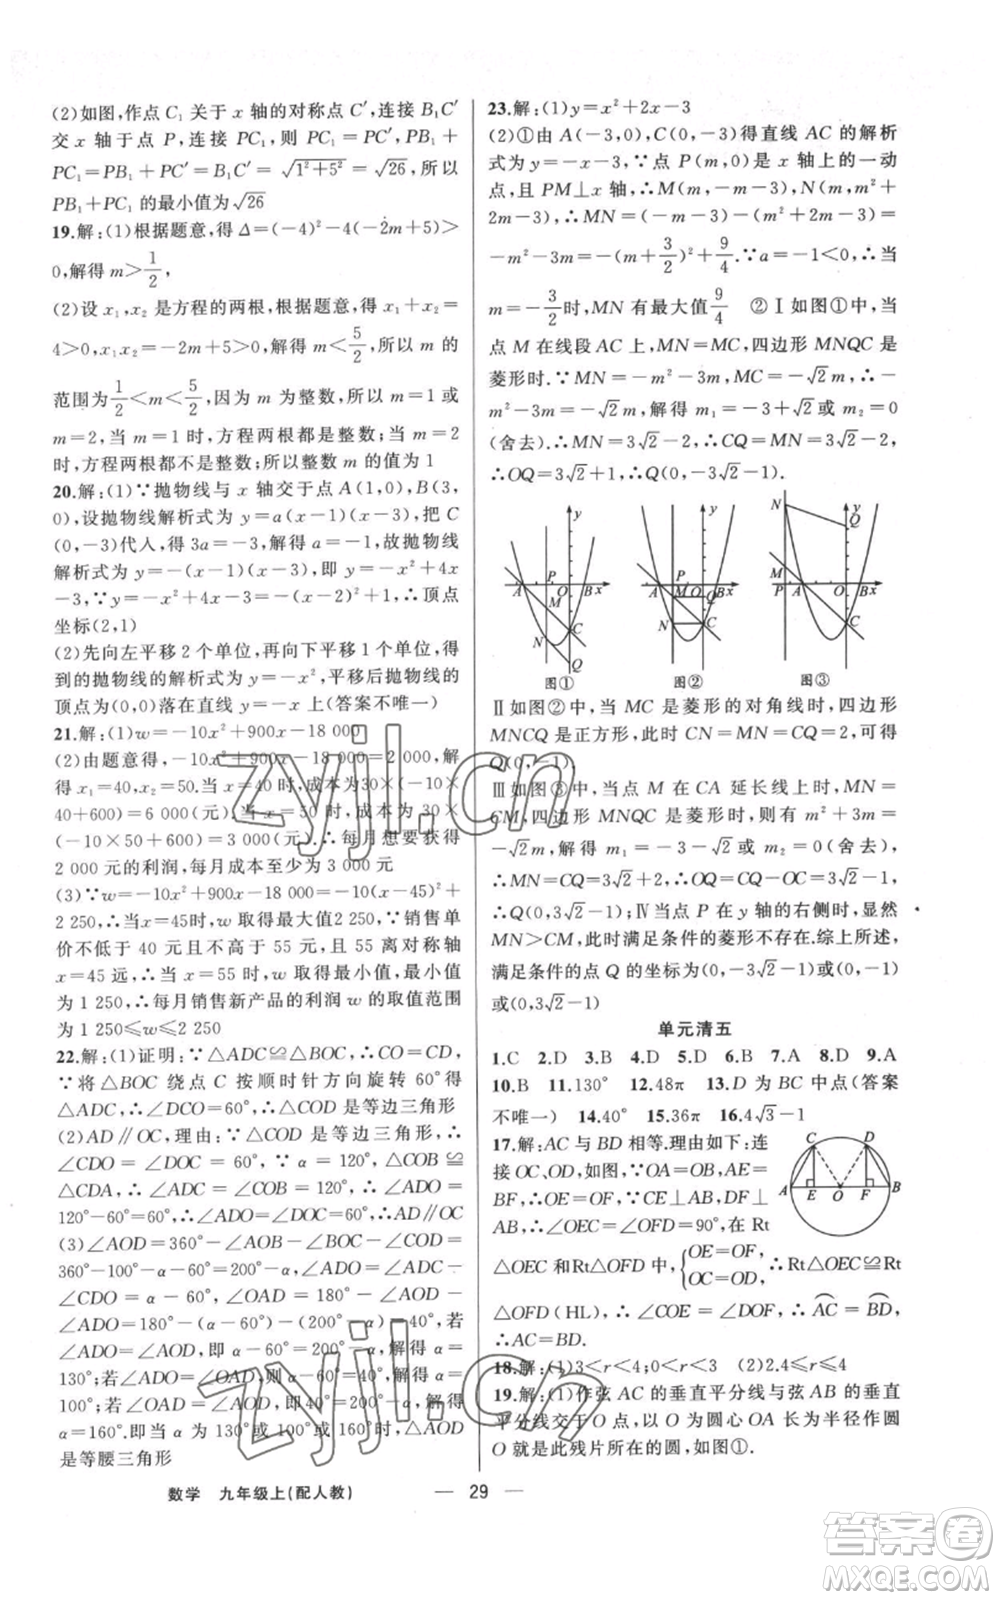 (2)如图,作点 C₁ 关于 x 轴的对称点 C′,连接 B₁C′
交 x 轴于点 P,连接 PC₁,则 PC₁=PC′,PB₁+
PC₁=PB₁+PC′=B₁C′=√(1²+5²)=√26,所以
PB₁+PC₁ 的最小值为√26
19.解:(1)根据题意,得 Δ=(-4)²-4(-2m+5)>
0,解得 m>1/2,
(2)设 x₁,x₂ 是方程的两根,根据题意,得 x₁+x₂=
4>0,x₁x₂=-2m+5>0,解得 m<5/2,所以 m 的
范围为1/2<m<5/2,因为 m 为整数,所以 m=1 或
m=2,当 m=1 时,方程两根都是整数;当 m=2
时,方程两根都不是整数;所以整数 m 的值为 1
20.解:(1)∵抛物线与 x 轴交于点 A(1,0),B(3,
0),设抛物线解析式为 y=a(x-1)(x-3),把 C
(0,-3)代人,得 3a=-3,解得 a=-1,故抛物线
解析式为 y=-(x-1)(x-3),即 y=-x²+4x
-3,∵y=-x²+4x-3=-(x-2)²+1,∴顶点
坐标(2,1)
(2)先向左平移 2 个单位,再向下平移 1 个单位,得
到的抛物线的解析式为 y=-x²,平移后抛物线的
顶点为(0,0)落在直线 y=-x 上(答案不唯一)
21.解:(1)w=-10x²+900x-18 000
(2)由题意得,-10x²+900x-18 000=2 000,解
得 x₁=40,x₂=50,当 x=40 时,成本为30×(-10×
40+600)=6 000(元),当 x=50 时,成本为 30×
(-10×50+600)=3 000(元),∴每月想要获得
2 000 元的利润,每月成本至少为 3 000 元
(3)∵w=-10x²+900x-18 000=-10(x-45)²+
2 250,∴当x=45时,w 取得最大值2 250,∵销售单
价不低于 40 元且不高于 55 元,且 55 离对称轴
x=45 远,∴当 x=55 时,w 取得最小值,最小值
为 1 250,∴每月销售新产品的利润 w 的取值范围
为 1 250≤w≤2 250
22.解:(1)证明:∵△ADC≌△BOC,∴CO=CD,
∵将△BOC 绕点 C 按顺时针方向旋转 60°得
△ADC,∴∠DCO=60°,∴△COD 是等边三角形
(2)AD∥OC,理由:∵△COD 是等边三角形,∴
∠CDO=∠DOC=60°,∵α=120°,△COB≌
△CDA,∴∠ADC=∠COB=120°,∴∠ADO=
120°-60°=60°,∴∠ADO=∠DOC=60°,∴AD∥OC
(3)∠AOD=360°-∠AOB-∠α-∠COD=
360°-100°-α-60°=200°-α,∠ADO=∠ADC-
∠CDO=α-60°,∠OAD=180°-∠AOD-
∠ADO=180°-(α-60°)-(200°-α)=40°,若
∠ADO=∠AOD,即 α-60°=200°-α,解得 α=
130°;若∠ADO=∠OAD,则 α-60°=40°,解得
α=100°;若∠OAD=∠AOD,即 40°=200°-α,
解得 α=160°.即当 α 为 130°或 100°或 160°时,△AOD
是等腰三角形
数学 九年级上(配人教)
— 29 —
23.解:(1)y=x²+2x-3
(2)①由 A(-3,0),C(0,-3)得直线 AC 的解析
式为 y=-x-3;∵点 P(m,0)是 x 轴上的一动
点,且 PM⊥x 轴,∴M(m,-m-3),N(m,m²+
2m-3),∴MN=(-m-3)-(m²+2m-3)=
-m²-3m=-(m+3/2)²+9/4.∵a=-1<0,∴当
m=-3/2时,MN 有最大值9/4 ②Ⅰ如图①中,当
点 M 在线段 AC 上,MN=MC,四边形 MNQC 是
菱形时.∵MN=-m²-3m,MC=-√2m,∴-
m²-3m=-√2m,解得 m₁=-3+√2或 m₂=0
(舍去).∴MN=3√2-2,∴CQ=MN=3√2-2,
∴OQ=3√2+1,∴Q(0,-3√2-1).
y
A
P
O
B
x
M
N
C
Q
图①
y
A
P
M
O
B
x
Q
N
C
图②
N
y
Q
M
P
A
O
B
x
C
图③
Ⅱ如图②中,当 MC 是菱形的对角线时,四边形
MNCQ 是正方形,此时 CN=MN=CQ=2,可得
Q(0,-1)
Ⅲ如图③中,当点 M 在 CA 延长线上时,MN=
CM,四边形 MNQC 是菱形时,则有 m²+3m=
-√2m,解得 m₁=-3-√2或 m₂=0(舍去),
∴MN=CQ=3√2+2,∴OQ=CQ-OC=3√2-1,
∴Q(0,3√2-1);Ⅳ当点 P 在 y 轴的右侧时,显然
MN>CM,此时满足条件的菱形不存在.综上所述,
满足条件的点 Q 的坐标为(0,-3√2-1)或(0,-1)
或(0,3√2-1)
单元清五
1.C 2.D 3.B 4.D 5.D 6.B 7.A 8.D 9.A
10.B 11.130° 12.48π 13.D 为 BC 中点(答案
不唯一) 14.40° 15.36π 16.4√3-1
17.解:AC 与 BD 相等.理由如下:连
接 OC、OD,如图,∵OA=OB,AE=
BF,∴OE=OF,∵CE⊥AB,DF⊥
AB,∴∠OEC=∠OFD=90°,在 Rt
△OEC 和Rt△OFD 中,{OE=OF, OC=OD,∴Rt△OEC≌Rt
△OFD(HL),∴∠COE=∠DOF,∴AC⌒=BD⌒,
∴AC=BD.
C
D
A
E
O
F
B
18.解:(1)3<r<4;0<r<3 (2)2.4≤r≤4
19.解:(1)作弦 AC 的垂直平分线与弦 AB 的垂直
平分线交于 O 点,以 O 为圆心 OA 长为半径作圆
O 就是此残片所在的圆,如图①.
zyjl.cn
zyjl.cn
答案圈
MXQE.COM